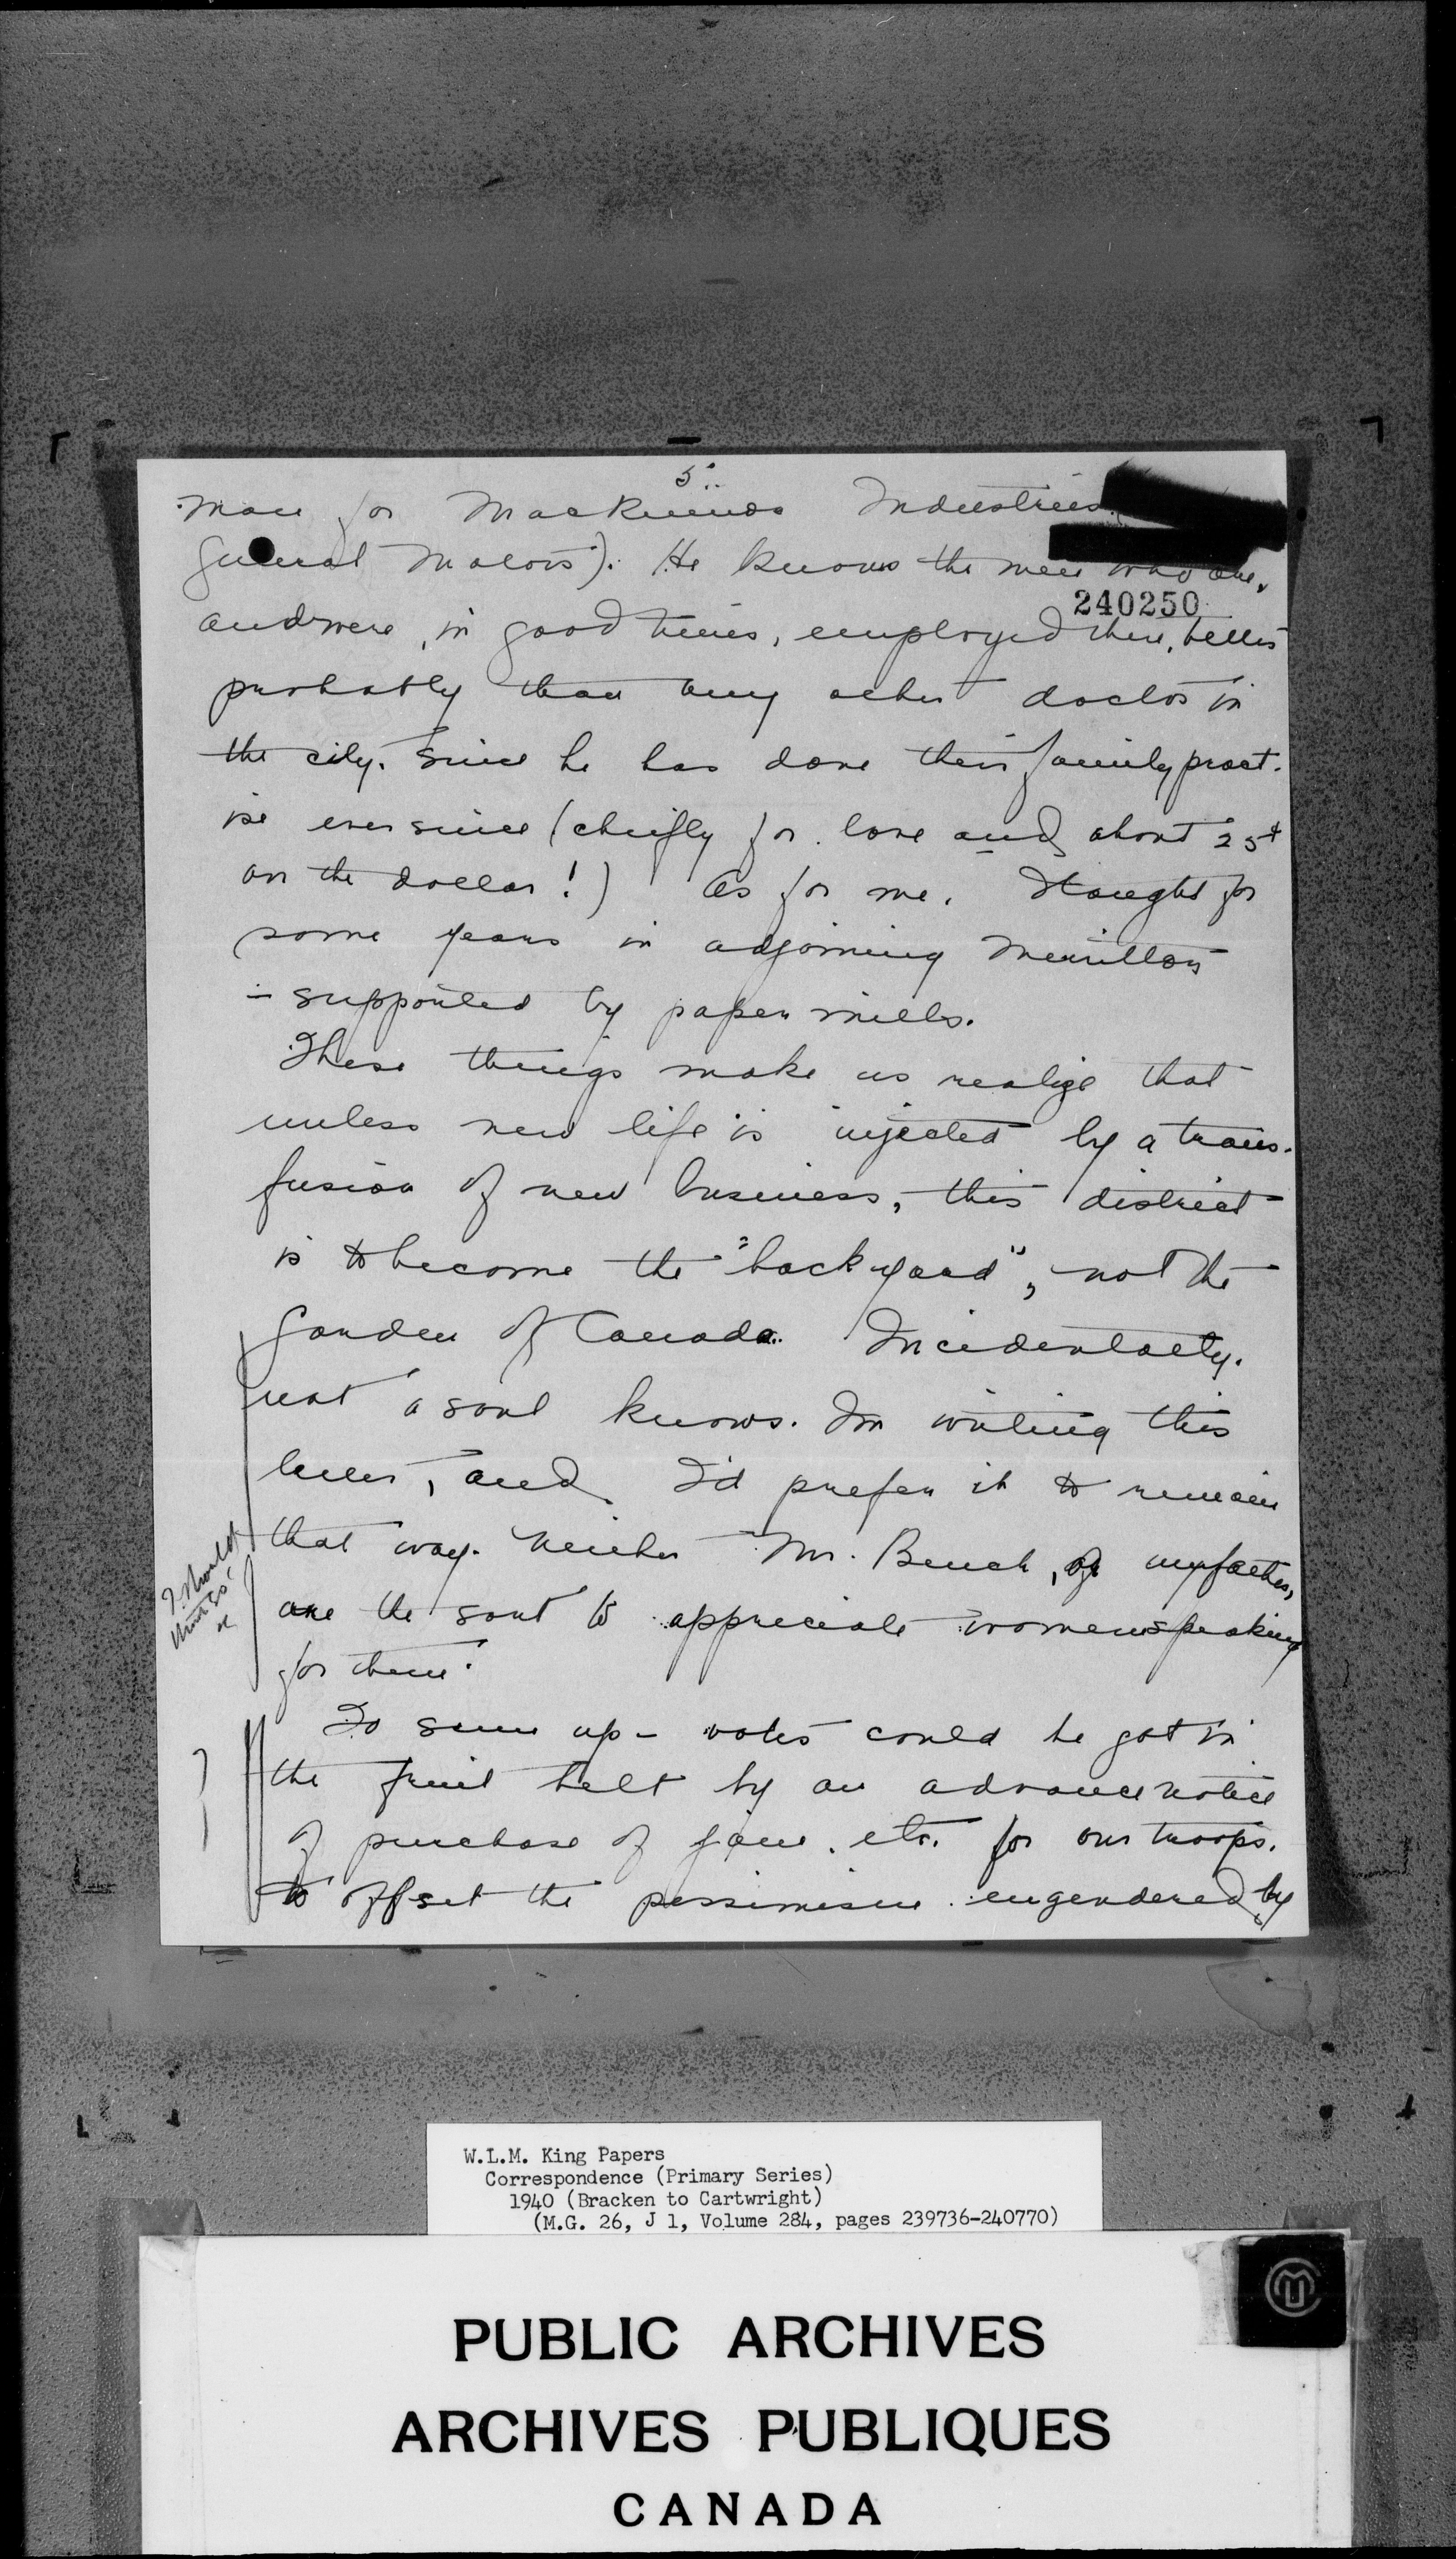 5.
man for MacKinnon Industries (
General Motors). He knows the men who are,
240250
and were, in good times, employed there, better
probably than any other doctor in
the city, since he has done their family pract-
ise ever since (chiefly for love and about 25¢
on the dollar!) As for me, I taught for
some years in adjoining Merritton
- supported by paper mills.
These things make us realize that
unless new life is injected by a trans-
fusion of new business, this district
is to become the "back yard", not the
Garden of Canada. Incidentally,
not a soul knows I'm writing this
letter, and I'd prefer it to remain
that way. Neither Mr. Bench, or my father,
are the sort to appreciate women speaking
for them.
I should
think so!
To sum up - votes could be got in
the fruit belt by an advance notice
of purchase of jam, etc. for our troops,
to offset the pessimism engendered by
W.L.M. King Papers
Correspondence (Primary Series)
1940 (Bracken to Cartwright)
(M.G. 26, J 1, Volume 284, pages 239736-240770)
PUBLIC ARCHIVES
ARCHIVES PUBLIQUES
CANADA